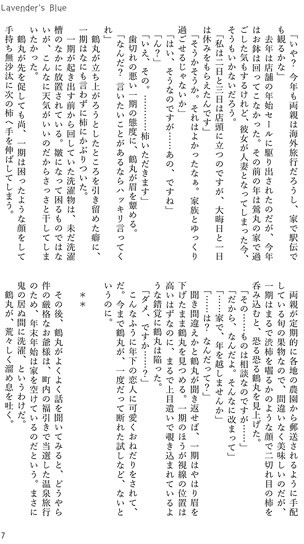 Lavender's Blue
「いや？　今年も両親は海外旅行だろうし、家で駅伝でも見るかな」
　去年は店舗の年始セールに駆り出されたのだが、今年はお鉢は回ってこなかった。その前の年は鶯丸の家で過ごした気もするけれど、彼女が人妻となってしまった今、そうもいかないだろう。
「私は二日と三日は店頭に立つのですが、大晦日と一日は休みをもらえたんです」
「そうかそうか、それはよかったなぁ。家族とゆっくり過ごせるじゃないか」
「はい、そうなのですが……あの、ですね」
「ん？」
「いえ、その。………柿いただきます」
　歯切れの悪い一期の態度に、鶴丸が眉を顰める。
「なんだ？　言いたいことがあるならハッキリ言ってくれ」
　鶴丸が立ち上がろうとしたところを引き留めた癖に、一期はなにも言わずに柿にかぶりついた。
　一期が起き出す前から回していた洗濯物は、未だ洗濯槽のなかに放置されている。皺になって困るものではないが、こんなに天気がいいのだからさっさと干してしまいたかった。
　鶴丸が先を促しても尚、一期は困ったような顔をして手持ち無沙汰に次の柿へ手を伸ばしてしまう。
両親が定期的に各地の農園から郵送されるように手配している旬の果物なので、間違いなく美味しいのだが、一期はまるで渋柿を囓るかのような顔で二切れ目の柿を呑み込むと、恐る恐る鶴丸を見上げた。
「その……ものは相談なのですが……」
「だから、なんだよ。そんなに改まって」
「……家で、年を越しませんか」
「……は？　なんだって？」
　聞き間違えかと鶴丸が聞き返せば、一期はやはり眉を下げたまま鶴丸を見つめる。一期のほうが視線の位置は高いはずなのに、まるで上目遣いで覗き込まれているような錯覚に鶴丸は陥った。
「ダメ、ですか……？」
　こんなふうに年下の恋人に可愛くおねだりをされて、だ。今まで鶴丸が、一度だって断れた試しなど、ないというのに。
＊＊
　その後、鶴丸がよくよく話を聞いてみると、どうやら件の厳格なお爺様は、町内の福引きで当選した温泉旅行のため、年末年始は家を空けているのだという。まさに鬼の居ぬ間に洗濯、というわけだ。
　鶴丸が、荒々しく溜め息を吐く。
7